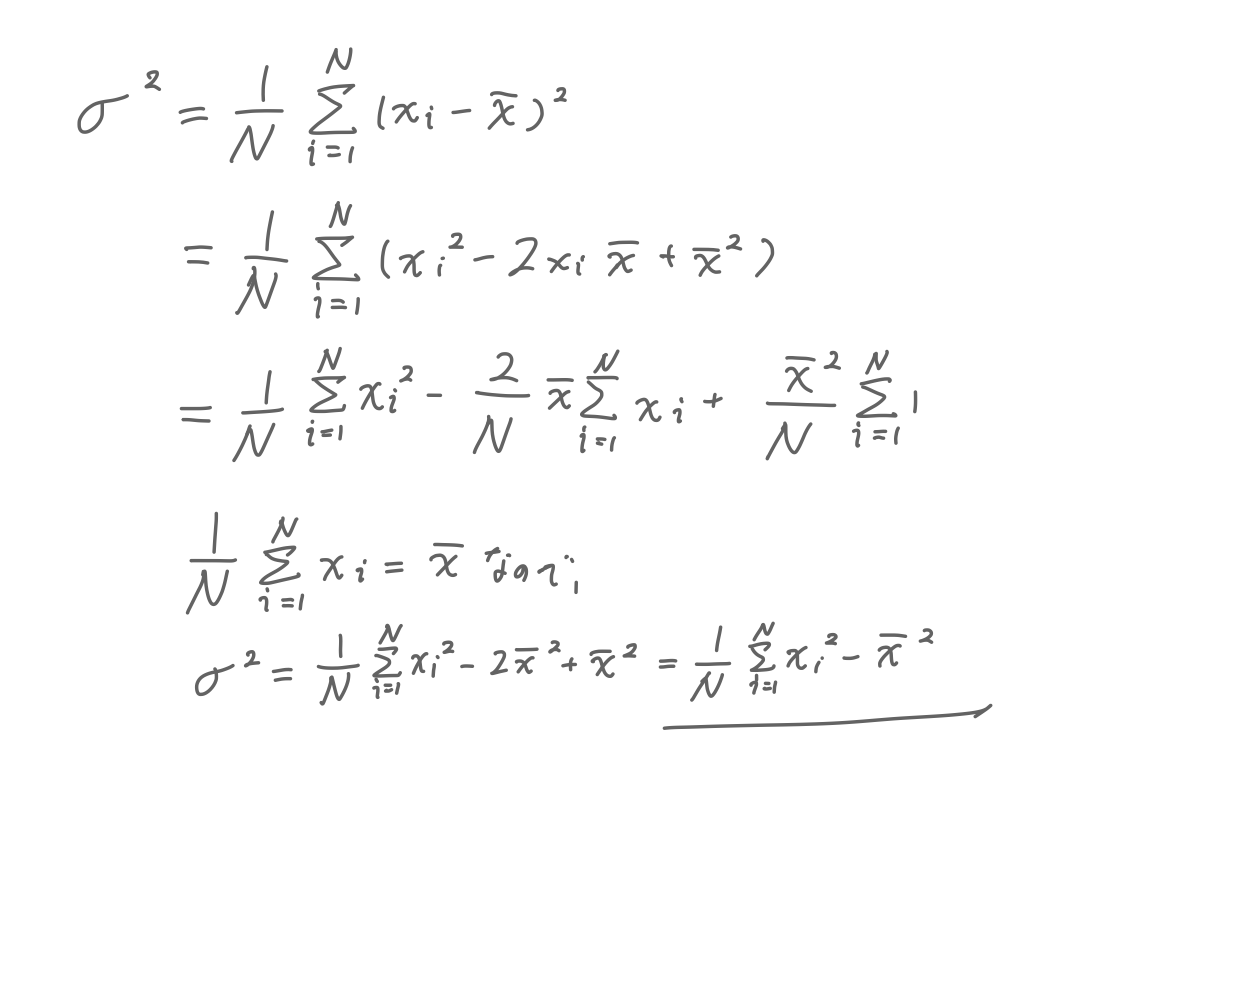 σ² = 1/N Σ_{i=1}^{N} (xᵢ - x̄)²
= 1/N Σ_{i=1}^{N} (xᵢ² - 2xᵢ x̄ + x̄²)
= 1/N Σ_{i=1}^{N} xᵢ² - 2/N x̄ Σ_{i=1}^{N} xᵢ + x̄²/N Σ_{i=1}^{N} 1
1/N Σ_{i=1}^{N} xᵢ = x̄
σ² = 1/N Σ_{i=1}^{N} xᵢ² - 2x̄² + x̄² = 1/N Σ_{i=1}^{N} xᵢ² - x̄²